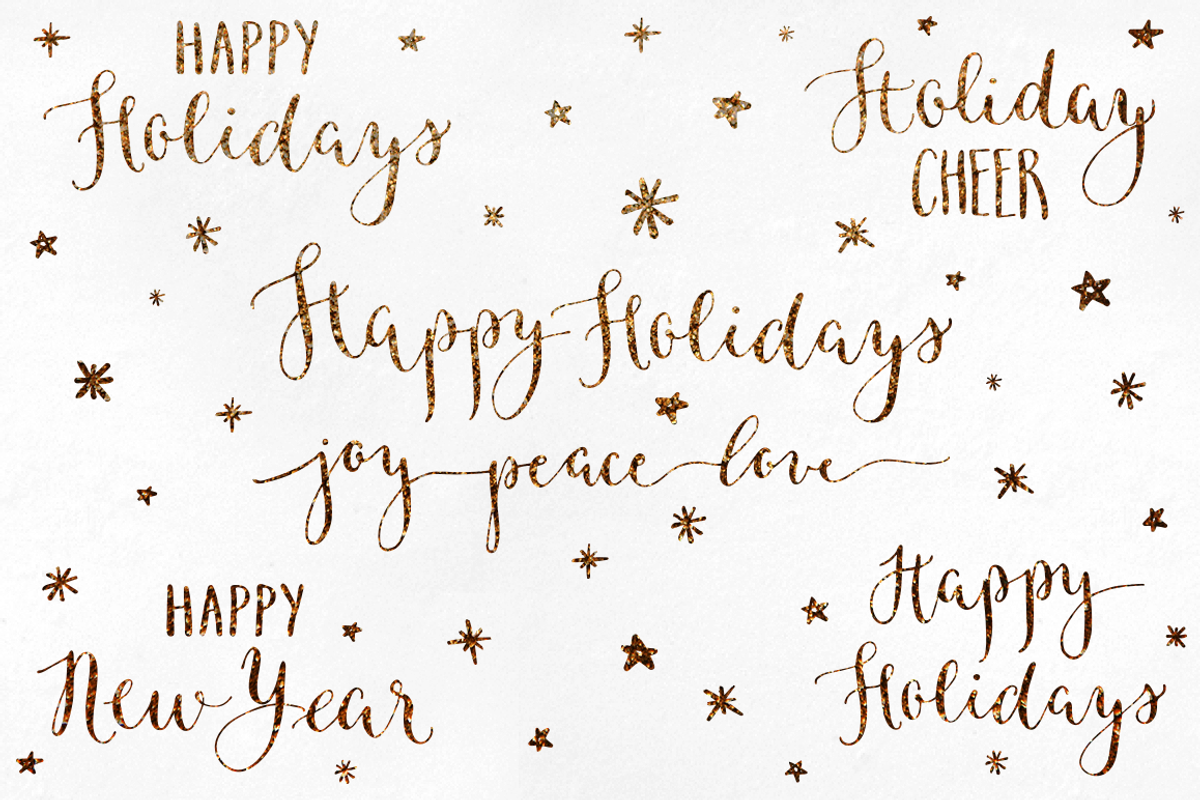 HAPPY
Holidays
Holiday
CHEER
Happy Holidays
joy peace love
HAPPY
New Year
Happy
Holidays